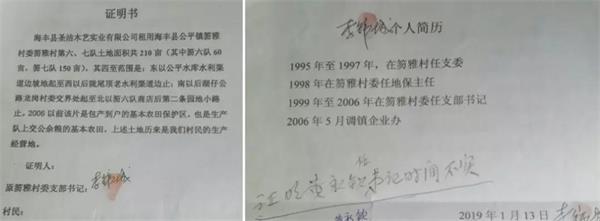 证明书
海丰县圣洁木艺实业有限公司租用海丰县公平镇笏雅
村委笏雅第六、七队土地面积共 210 亩（其中笏六队 60
亩，笏七队 150 亩），其四至范围是：东以公平水库水利渠
道边坡地起至西以后陇尾项老水利渠道边止；南以后湖仔公
路龙岗村委交界处起至北以笏六队商店后第二条园地小路
止。2006 以前该片是包产到户的基本农田保护区，也是生产
队上交公余粮的基本农田，上述土地历来是我们村民的生产
经营地。
证明人：
原笏雅村委支部书记：
村民：
个人简历
1995 年至 1997 年，在笏雅村任支委
1998 年在笏雅村委任地保主任
1999 年至 2006 年在笏雅村委任支部书记
2006 年 5 月调镇企业办
任
书记时间不实
2019 年 1 月 13 日